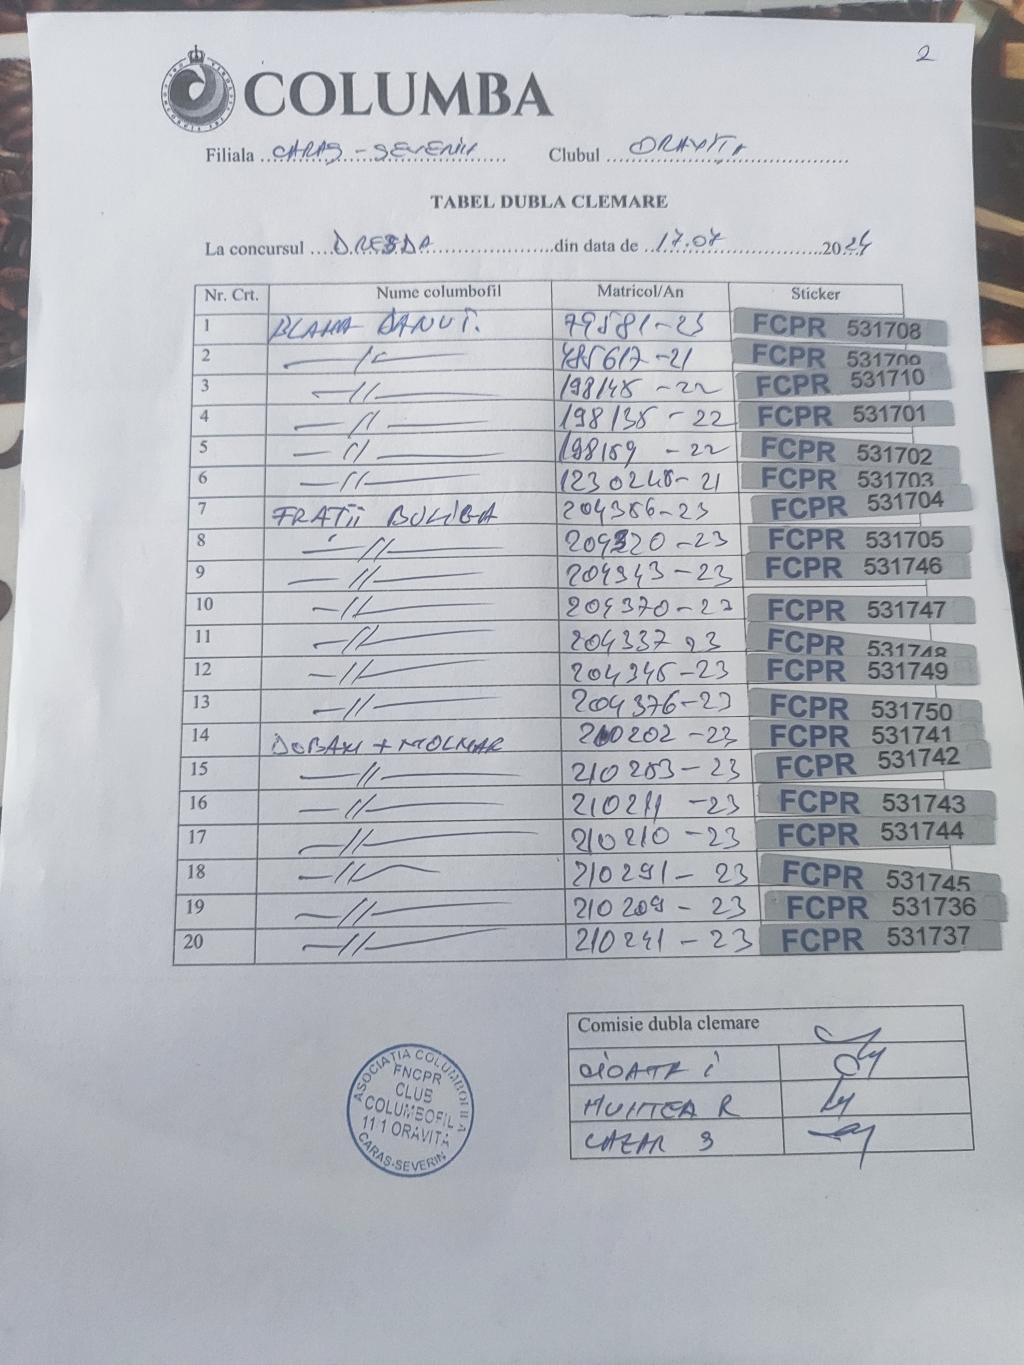 2
COLUMBA
Filiala CARAS - SEVERIN Clubul ORAVITA
TABEL DUBLA CLEMARE
La concursul DRESDA din data de 17.07 2024
Nr. Crt. Nume columbofil Matricol/An Sticker
1 BLAHA DANUT. 79581-23 FCPR 531708
2 —//— 485617-21 FCPR 531709
3 —//— 198148-22 FCPR 531710
4 —//— 198138-22 FCPR 531701
5 —//— 198159-22 FCPR 531702
6 —//— 1230248-21 FCPR 531703
7 FRATII BULIGA 204386-23 FCPR 531704
8 —//— 204320-23 FCPR 531705
9 —//— 204343-23 FCPR 531746
10 —//— 204370-23 FCPR 531747
11 —//— 204337 23 FCPR 531748
12 —//— 204345-23 FCPR 531749
13 —//— 204376-23 FCPR 531750
14 + MOLNAR 210202-23 FCPR 531741
15 —//— 210253-23 FCPR 531742
16 —//— 210211-23 FCPR 531743
17 —//— 210210-23 FCPR 531744
18 —//— 210291-23 FCPR 531745
19 —//— 210209-23 FCPR 531736
20 —//— 210241-23 FCPR 531737
Comisie dubla clemare
MUNTEA R
CAZAR S
ASOCIATIA COLUMBOFILA
FNCPR
CLUB
COLUMBOFIL
111 ORAVITA
CARAS-SEVERIN